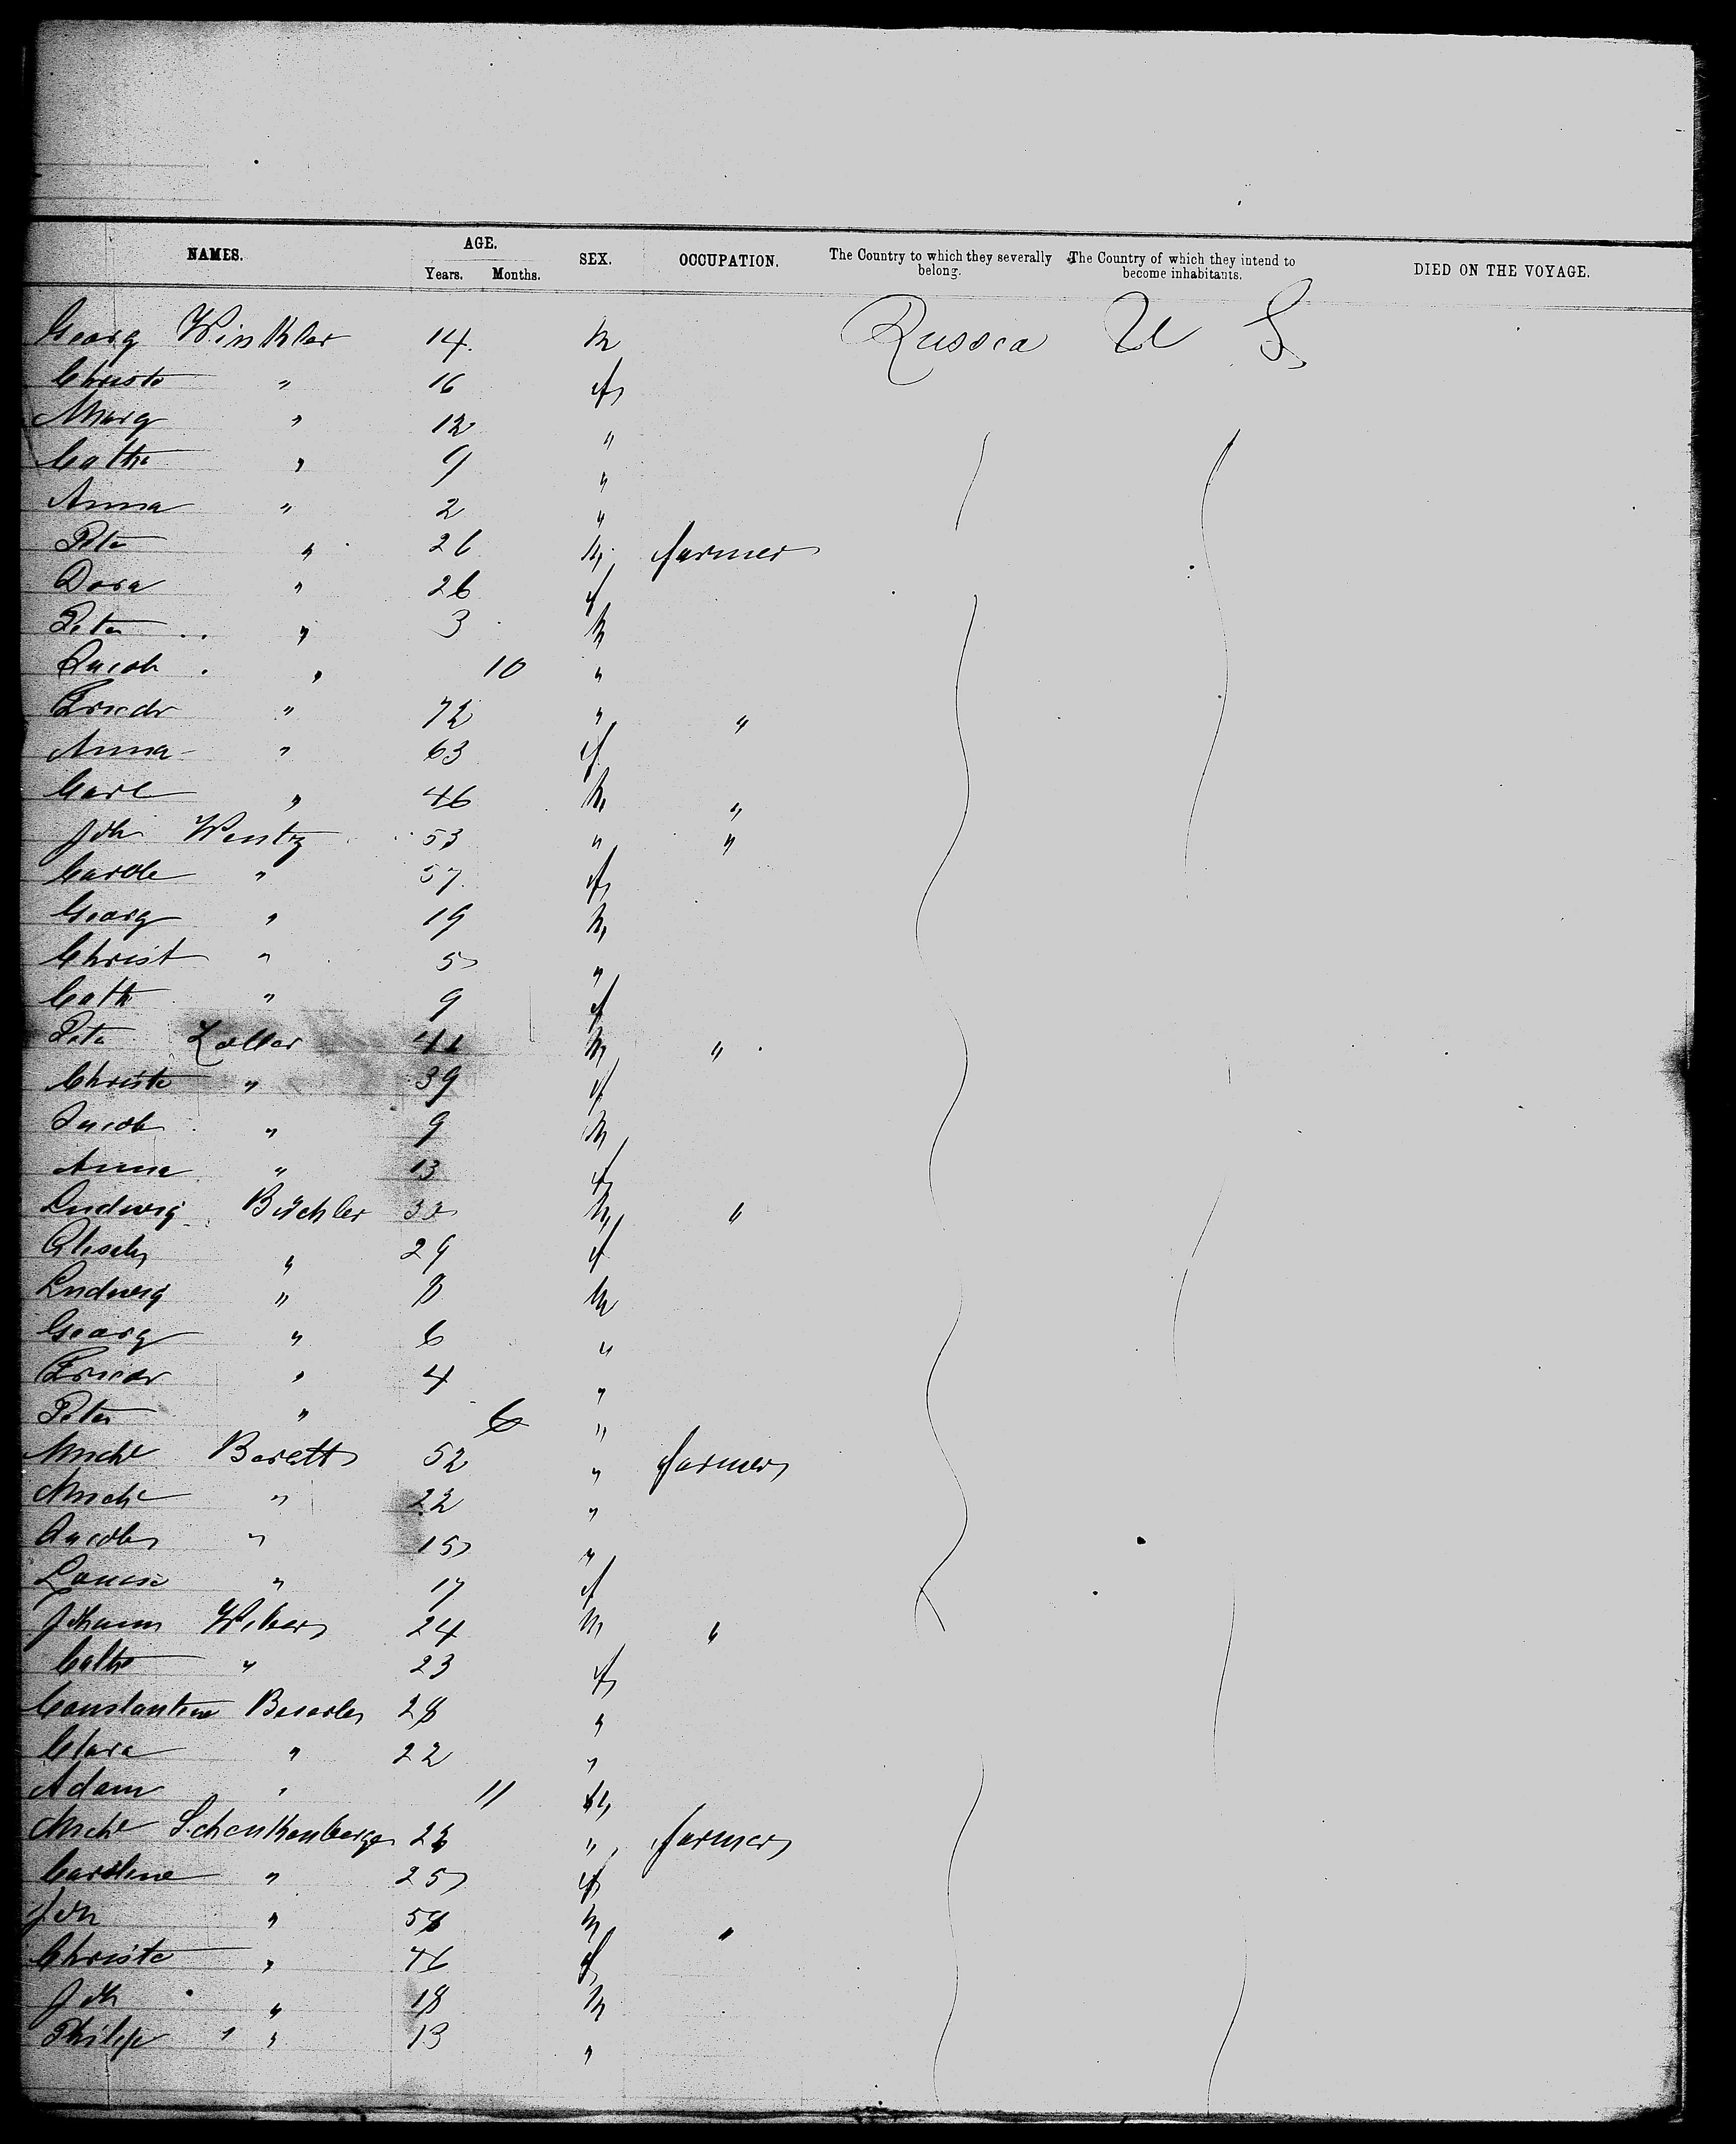 NAMES. AGE. SEX. OCCUPATION. The Country to which they severally belong. The Country of which they intend to become inhabitants. DIED ON THE VOYAGE.
Years. Months.
Georg Winkler 14 M Russia U S
Christe " 16 f
Marg " 12 "
Cathe " 9 "
Anna " 2 "
Peter " 26 M farmer
Dora " 26 f
Peter " 3 M
Jacob " 10 "
Friedr " 72 " "
Anna " 63 f
Carl " 46 M "
Joh Wentz 53 " "
Carole " 57 f
Georg " 19 M
Christ " 5 "
Cath " 9 f
Peter Zoller 41 M "
Christe " 39 f
Jacob " 9 M
Anna " 13 f
Ludwig Büchler 33 M "
Elisab " 29 f
Ludwig " 8 M
Georg " 6 "
Friedr " 4 "
Peter " 6 "
Michl Barett 52 " farmer
Michl " 22 "
Jacob " 15 "
Louise " 17 f
Johann Weber 24 M "
Cathe " 23 f
Constantine 28 "
Clara " 22 "
Adam " 11 M
Michl Schenkenberger 26 " farmer
Caroline " 25 f
Joh " 58 M "
Christe " 46 f
Joh " 18 M
Philip " 13 "